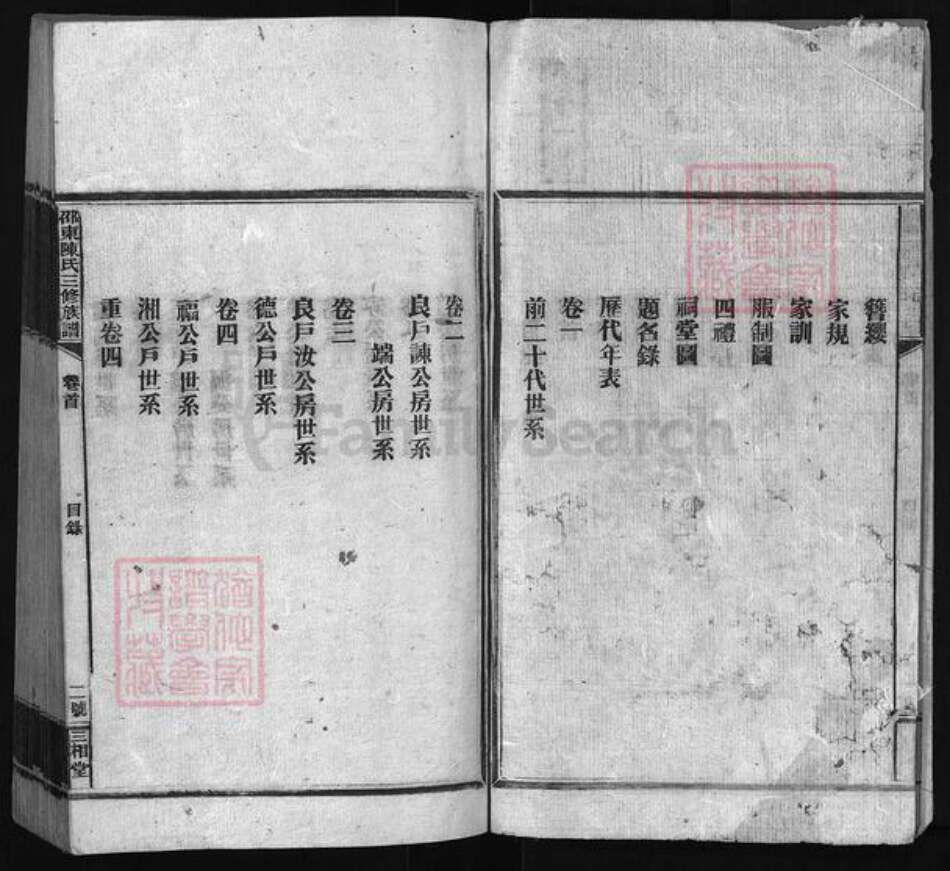 簪纓
家規
家訓
服制圖
四禮
祠堂圖
題名錄
歷代年表
卷一
前二十代世系
卷二
良戶諫公房世系
端公房世系
卷三
良戶汝公房世系
德公戶世系
卷四
福公戶世系
湘公戶世系
重卷四
邵東陳氏三修族譜
卷首
目錄
二號
三相堂
FamilySearch